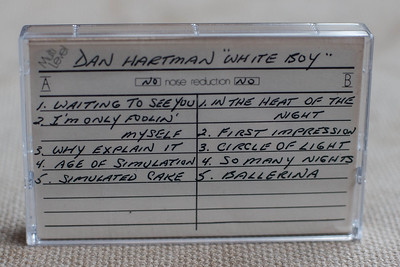 Multi Level
DAN HARTMAN "WHITE BOY"
A NO noise reduction NO B
1. WAITING TO SEE YOU
2. I'M ONLY FOOLIN'
MYSELF
3. WHY EXPLAIN IT
4. AGE OF SIMULATION
5. SIMULATED CAKE
1. IN THE HEAT OF THE
NIGHT
2. FIRST IMPRESSION
3. CIRCLE OF LIGHT
4. SO MANY NIGHTS
5. BALLERINA